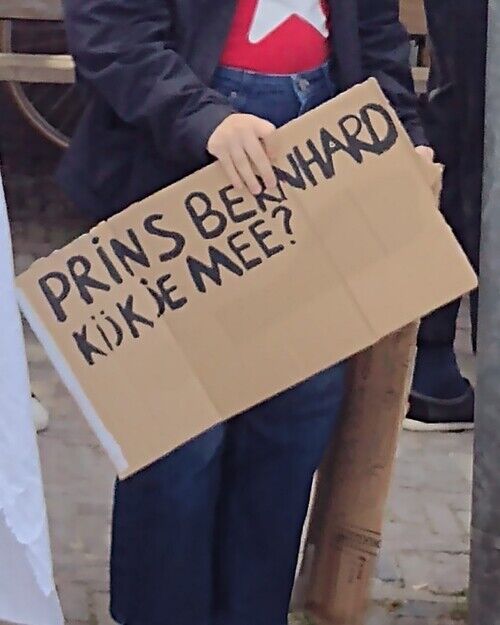 PRiNS BERNHARD
KIJK JE MEE?